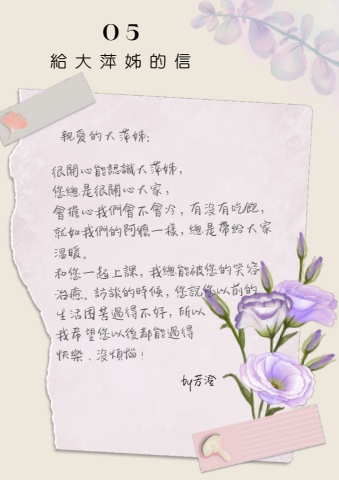 05
給大萍姊的信
親愛的大萍姊：
很開心能認識大萍姊，
您總是很關心大家，
會擔心我們會不會冷，有沒有吃飽，
就如我們的阿嬤一樣，總是帶給大家
溫暖。
和您一起上課，我總能被您的笑容
治癒。訪談的時候，您說您以前的
生活困苦過得不好，所以
我希望您以後都能過得
快樂、沒煩惱！
by芳澄